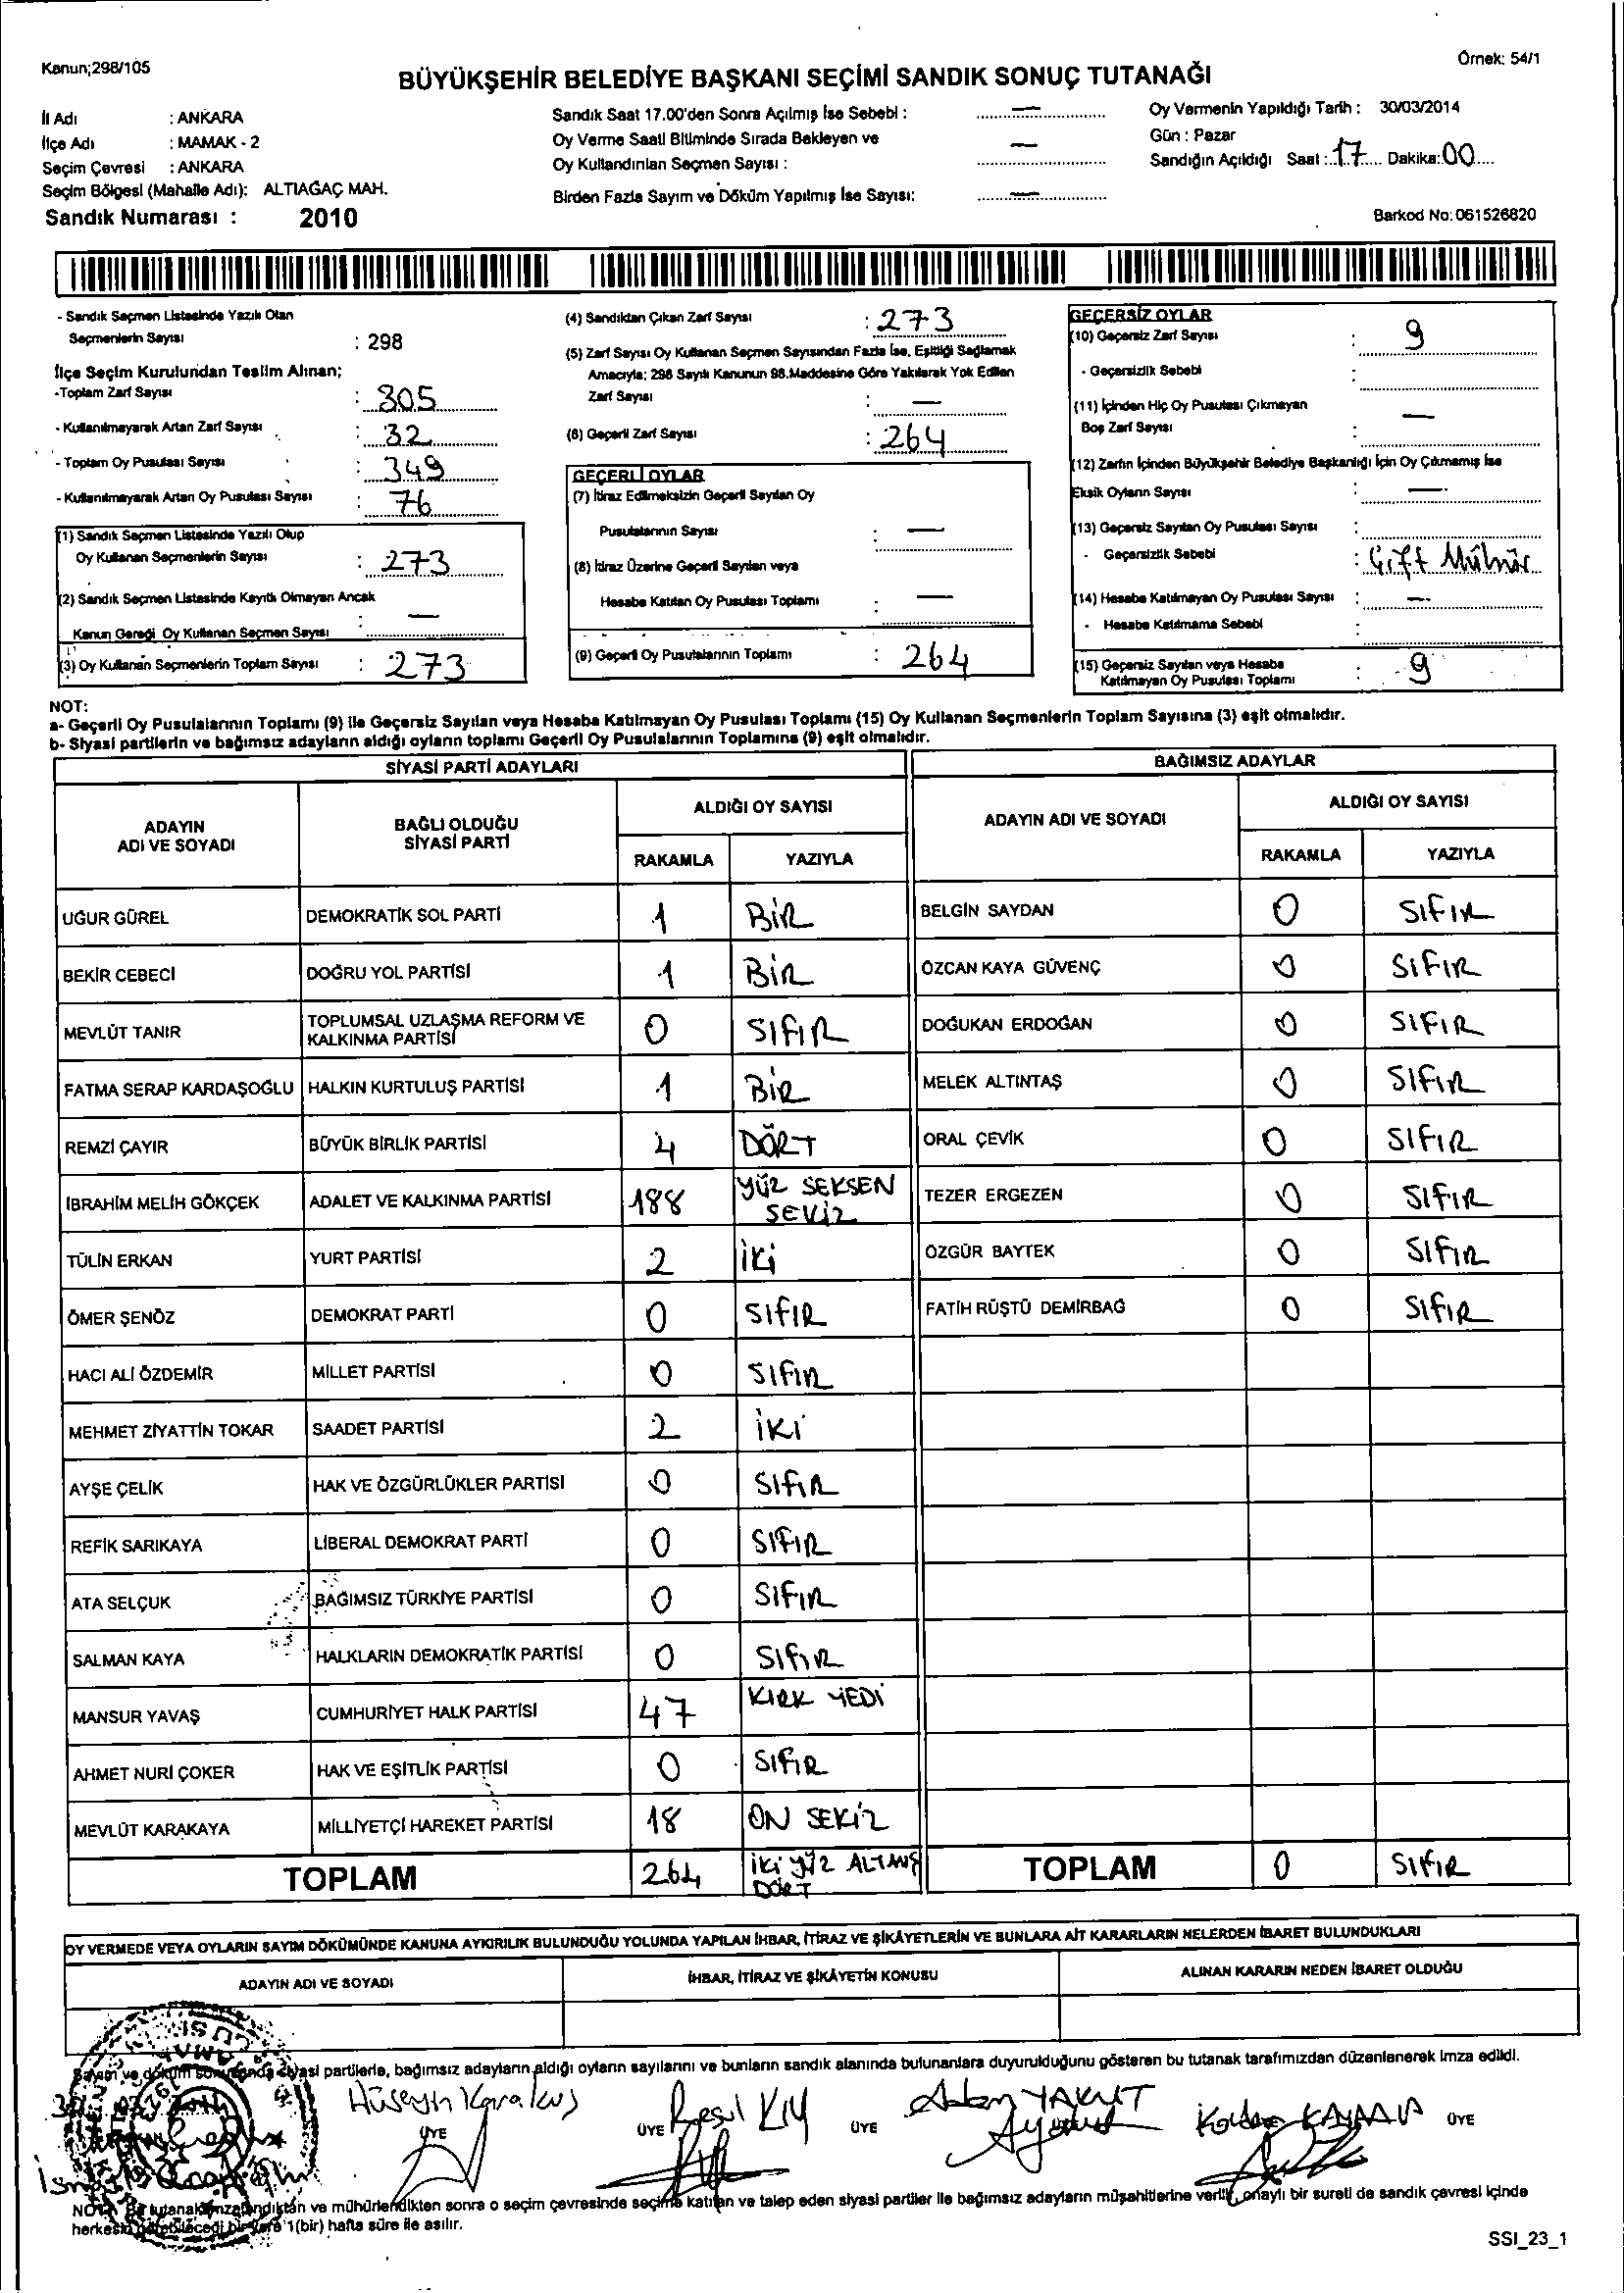 Kanun;298/105
Örnek: 54/1
BÜYÜKŞEHİR BELEDİYE BAŞKANI SEÇİMİ SANDIK SONUÇ TUTANAĞI
İl Adı : ANKARA
İlçe Adı : MAMAK - 2
Seçim Çevresi : ANKARA
Seçim Bölgesi (Mahalle Adı): ALTIAĞAÇ MAH.
Sandık Numarası : 2010
Sandık Saat 17.00'den Sonra Açılmış İse Sebebi : —
Oy Verme Saati Bitiminde Sırada Bekleyen ve
Oy Kullandırılan Seçmen Sayısı : —
Birden Fazla Sayım ve Döküm Yapılmış İse Sayısı: —
Oy Vermenin Yapıldığı Tarih : 30/03/2014
Gün : Pazar
Sandığın Açıldığı Saat : 17 Dakika: 00
Barkod No: 061526820
- Sandık Seçmen Listesinde Yazılı Olan
Seçmenlerin Sayısı : 298
İlçe Seçim Kurulundan Teslim Alınan;
-Toplam Zarf Sayısı : 305
- Kullanılmayarak Artan Zarf Sayısı : 32
- Toplam Oy Pusulası Sayısı : 349
- Kullanılmayarak Artan Oy Pusulası Sayısı : 76
(1) Sandık Seçmen Listesinde Yazılı Olup
Oy Kullanan Seçmenlerin Sayısı : 273
(2) Sandık Seçmen Listesinde Kayıtlı Olmayan Ancak
Kanun Gereği Oy Kullanan Seçmen Sayısı : —
(3) Oy Kullanan Seçmenlerin Toplam Sayısı : 273
(4) Sandıktan Çıkan Zarf Sayısı : 273
(5) Zarf Sayısı Oy Kullanan Seçmen Sayısından Fazla İse, Eşitliği Sağlamak
Amacıyla; 298 Sayılı Kanunun 98.Maddesine Göre Yakılarak Yok Edilen
Zarf Sayısı : —
(6) Geçerli Zarf Sayısı : 264
GEÇERLİ OYLAR
(7) İtiraz Edilmeksizin Geçerli Sayılan Oy
Pusulalarının Sayısı : —
(8) İtiraz Üzerine Geçerli Sayılan veya
Hesaba Katılan Oy Pusulası Toplamı : —
(9) Geçerli Oy Pusulalarının Toplamı : 264
GEÇERSİZ OYLAR
(10) Geçersiz Zarf Sayısı : 9
- Geçersizlik Sebebi :
(11) İçinden Hiç Oy Pusulası Çıkmayan
Boş Zarf Sayısı : —
(12) Zarfın İçinden Büyükşehir Belediye Başkanlığı İçin Oy Çıkmamış İse
Eksik Oyların Sayısı : —
(13) Geçersiz Sayılan Oy Pusulası Sayısı :
- Geçersizlik Sebebi : Çift Mühür
(14) Hesaba Katılmayan Oy Pusulası Sayısı : —
- Hesaba Katılmama Sebebi :
(15) Geçersiz Sayılan veya Hesaba
Katılmayan Oy Pusulası Toplamı : 9
NOT:
a- Geçerli Oy Pusulalarının Toplamı (9) ile Geçersiz Sayılan veya Hesaba Katılmayan Oy Pusulası Toplamı (15) Oy Kullanan Seçmenlerin Toplam Sayısına (3) eşit olmalıdır.
b- Siyasi partilerin ve bağımsız adayların aldığı oyların toplamı Geçerli Oy Pusulalarının Toplamına (9) eşit olmalıdır.
SİYASİ PARTİ ADAYLARI
ADAYIN
ADI VE SOYADI
BAĞLI OLDUĞU
SİYASİ PARTİ
ALDIĞI OY SAYISI
RAKAMLA YAZIYLA
UĞUR GÜREL DEMOKRATİK SOL PARTİ 1 BİR
BEKİR CEBECİ DOĞRU YOL PARTİSİ 1 BİR
MEVLÜT TANIR TOPLUMSAL UZLAŞMA REFORM VE
KALKINMA PARTİSİ 0 SIFIR
FATMA SERAP KARDAŞOĞLU HALKIN KURTULUŞ PARTİSİ 1 BİR
REMZİ ÇAYIR BÜYÜK BİRLİK PARTİSİ 4 DÖRT
İBRAHİM MELİH GÖKÇEK ADALET VE KALKINMA PARTİSİ 188 YÜZ SEKSEN
SEKİZ
TÜLİN ERKAN YURT PARTİSİ 2 İKİ
ÖMER ŞENÖZ DEMOKRAT PARTİ 0 SIFIR
HACI ALİ ÖZDEMİR MİLLET PARTİSİ 0 SIFIR
MEHMET ZİYATTİN TOKAR SAADET PARTİSİ 2 İKİ
AYŞE ÇELİK HAK VE ÖZGÜRLÜKLER PARTİSİ 0 SIFIR
REFİK SARIKAYA LİBERAL DEMOKRAT PARTİ 0 SIFIR
ATA SELÇUK BAĞIMSIZ TÜRKİYE PARTİSİ 0 SIFIR
SALMAN KAYA HALKLARIN DEMOKRATİK PARTİSİ 0 SIFIR
MANSUR YAVAŞ CUMHURİYET HALK PARTİSİ 47 KIRK YEDİ
AHMET NURİ ÇOKER HAK VE EŞİTLİK PARTİSİ 0 SIFIR
MEVLÜT KARAKAYA MİLLİYETÇİ HAREKET PARTİSİ 18 ON SEKİZ
TOPLAM 264 İKİ YÜZ ALTMIŞ
DÖRT
BAĞIMSIZ ADAYLAR
ADAYIN ADI VE SOYADI
ALDIĞI OY SAYISI
RAKAMLA YAZIYLA
BELGİN SAYDAN 0 SIFIR
ÖZCAN KAYA GÜVENÇ 0 SIFIR
DOĞUKAN ERDOĞAN 0 SIFIR
MELEK ALTINTAŞ 0 SIFIR
ORAL ÇEVİK 0 SIFIR
TEZER ERGEZEN 0 SIFIR
ÖZGÜR BAYTEK 0 SIFIR
FATİH RÜŞTÜ DEMİRBAĞ 0 SIFIR
TOPLAM 0 SIFIR
OY VERMEDE VEYA OYLARIN SAYIM DÖKÜMÜNDE KANUNA AYKIRILIK BULUNDUĞU YOLUNDA YAPILAN İHBAR, İTİRAZ VE ŞİKÂYETLERİN VE BUNLARA AİT KARARLARIN NELERDEN İBARET BULUNDUKLARI
ADAYIN ADI VE SOYADI İHBAR, İTİRAZ VE ŞİKÂYETİN KONUSU ALINAN KARARIN NEDEN İBARET OLDUĞU
Sayım ve döküm sonucunda siyasi partilerle, bağımsız adayların aldığı oyların sayılarını ve bunların sandık alanında bulunanlara duyurulduğunu gösteren bu tutanak tarafımızdan düzenlenerek imza edildi.
Hüseyin Karakuş
ÜYE
ÜYE Resul
ÜYE
YAKUT
ÜYE
NOT: Bir tutanak imzalandıktan ve mühürlendikten sonra o seçim çevresinde seçime katılan ve talep eden siyasi partiler ile bağımsız adayların müşahitlerine verilir, onaylı bir sureti de sandık çevresi içinde
herkesin görebileceği bir yere 1(bir) hafta süre ile asılır.
SSI_23_1